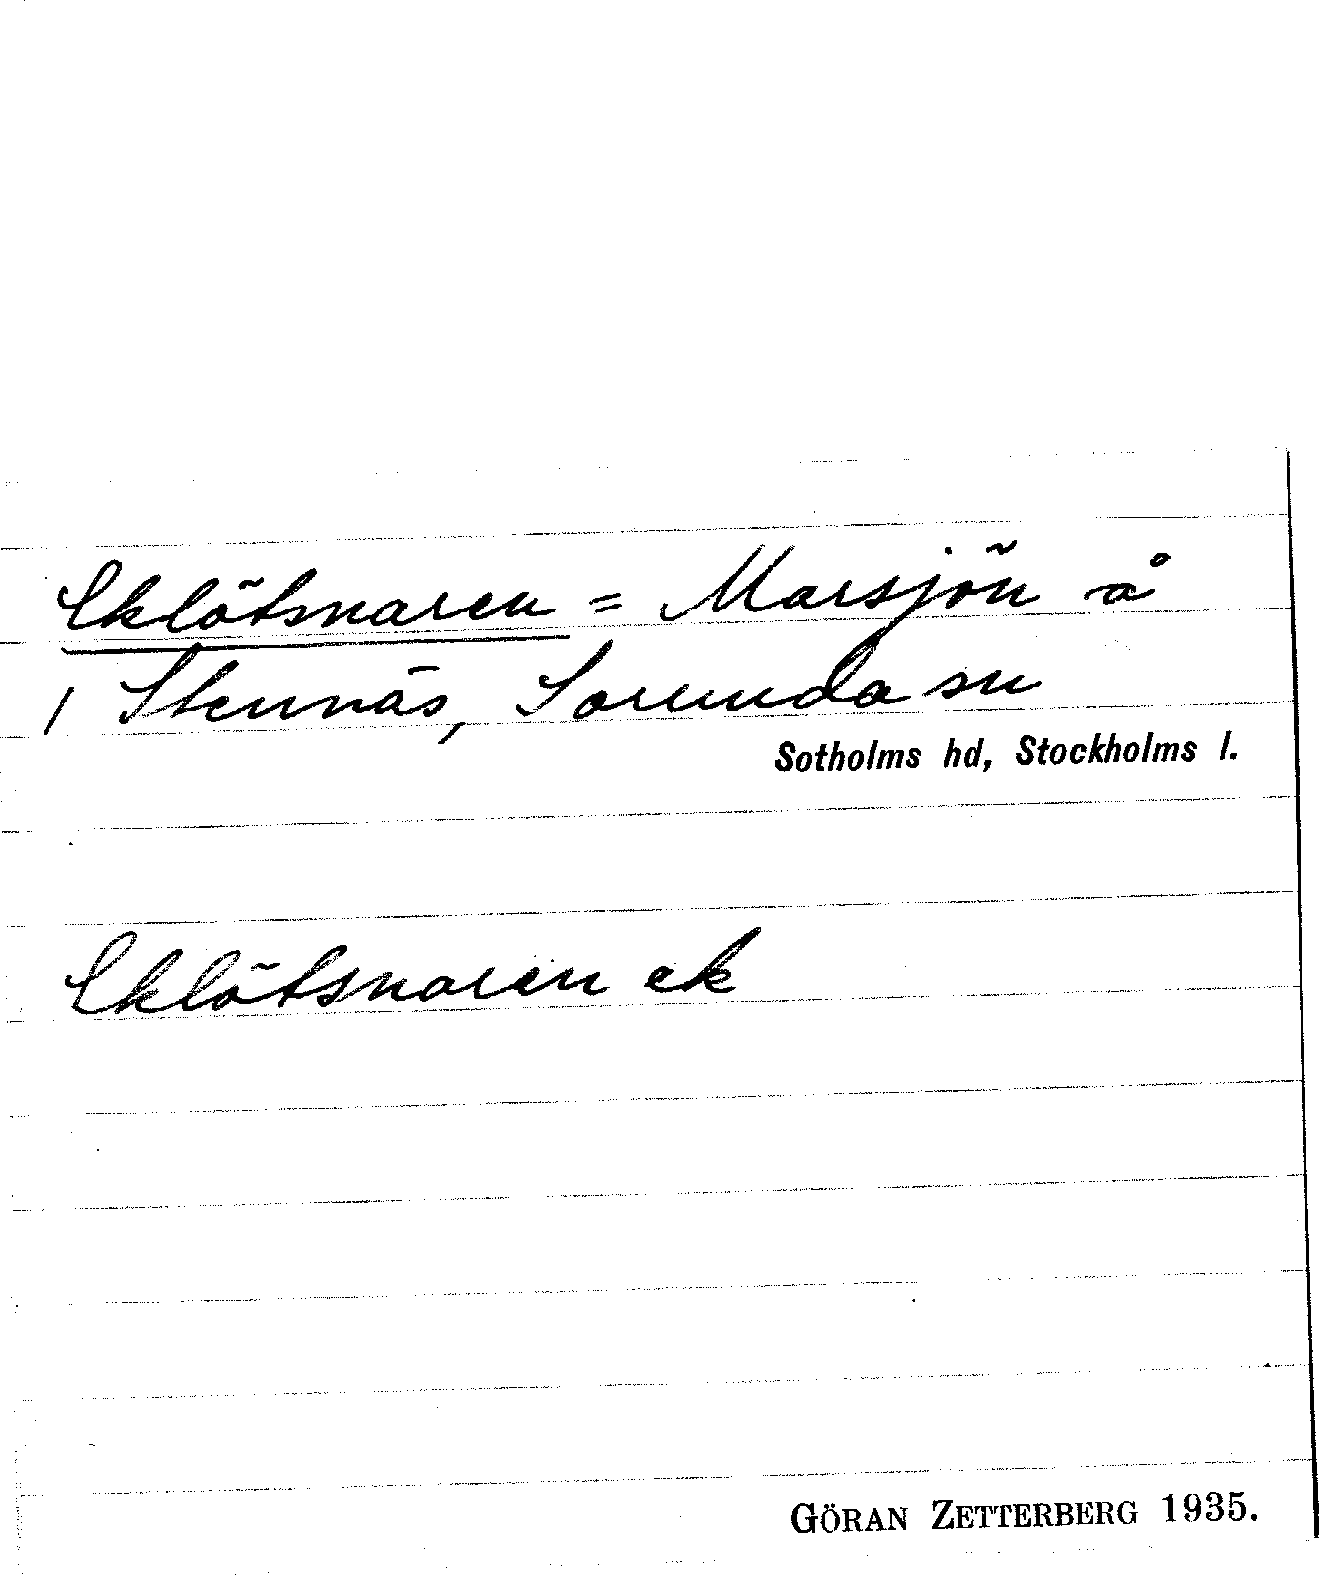 Eklötsmaren = Marsjön å
/ Stennäs, Sorunda sn
Sotholms hd, Stockholms l.
Eklötsmaren ek
GÖRAN ZETTERBERG 1935.